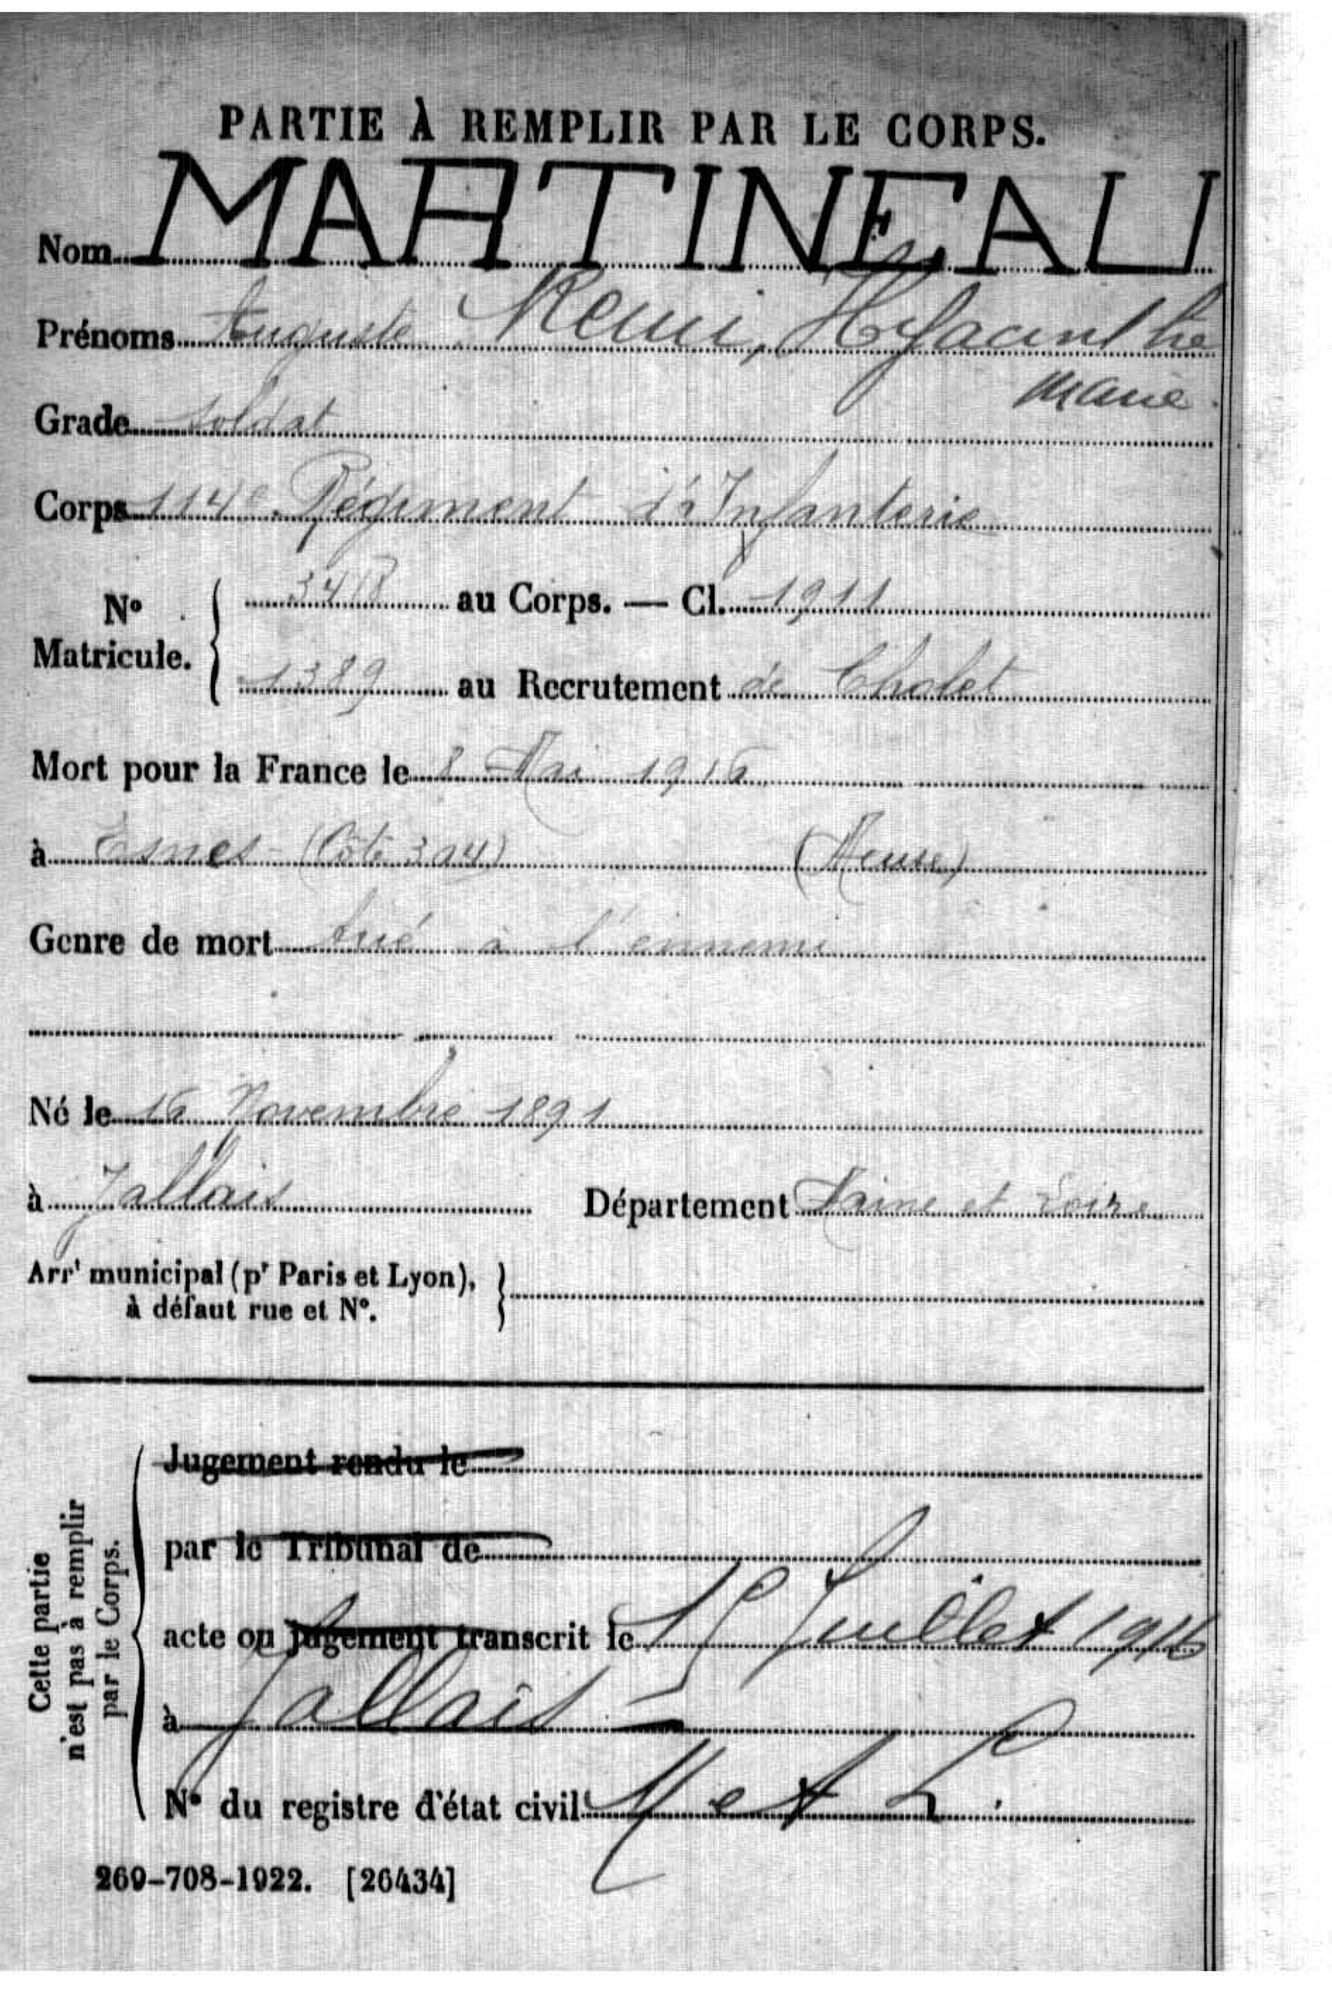 PARTIE À REMPLIR PAR LE CORPS.
Nom MARTINEAU
Prénoms Auguste Remi, Hyacinthe
Marie
Grade Soldat
Corps 114e Régiment d'Infanterie
No Matricule. 3418 au Corps. — Cl. 1911
1389 au Recrutement de Cholet
Mort pour la France le 8 Mai 1916
à Esnes - (Côte 304) (Meuse)
Genre de mort tué à l'ennemi
Né le 16 Novembre 1891
à Jallais Département Maine et Loire
Arrt municipal (pr Paris et Lyon),
à défaut rue et No.
Cette partie
n'est pas à remplir
par le Corps.
Jugement rendu le
par le Tribunal de
acte ou jugement transcrit le 15 Juillet 1916
à Jallais
No du registre d'état civil M et L.
269-708-1922. [26434]